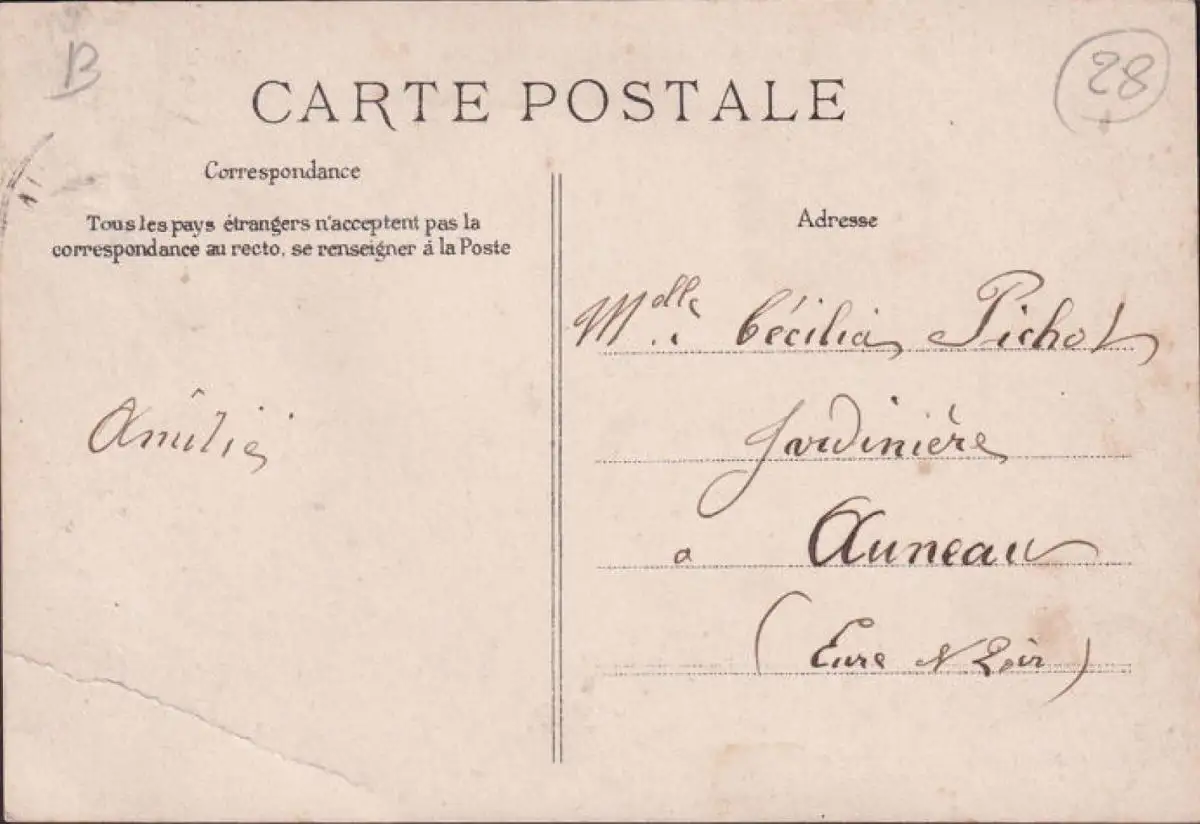 B
28
CARTE POSTALE
Correspondance
Tous les pays étrangers n'acceptent pas la
correspondance au recto, se renseigner á la Poste
Adresse
Mdlle Cécilia Pichot
Jardinière
a Auneau
(Eure & Loir)
Amîlie